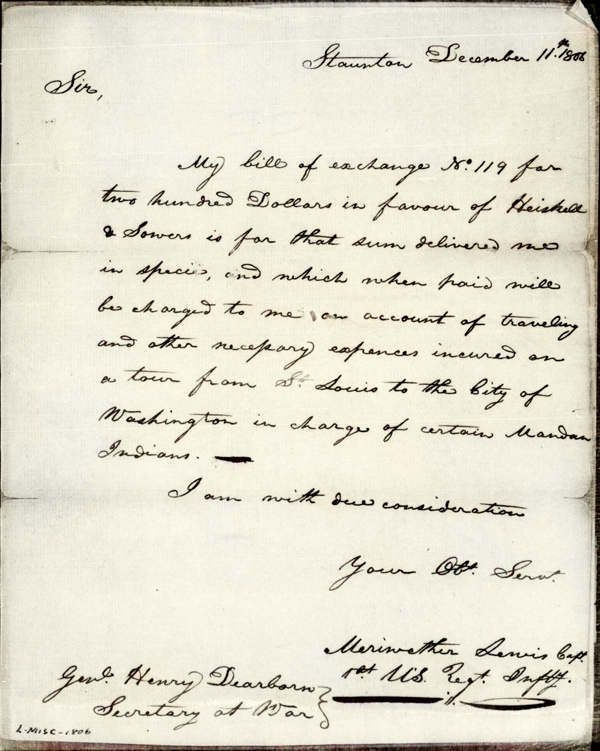 Staunton December 11.th 1806
Sir,
My bill of exchange No. 119 for
two hundred Dollars in favour of Heiskell
& Sowers is for that sum delivered me
in specie, and which when paid will
be charged to me on account of traveling
and other necessary expences incured on
a tour from St. Louis to the City of
Washington in charge of certain Mandan
Indians. —
I am with due consideration
Your Obt. Servt.
Meriwether Lewis Capt.
1st U.S. Regt. Infty.
Genl. Henry Dearborn
Secretary at War
L-MISC-1806